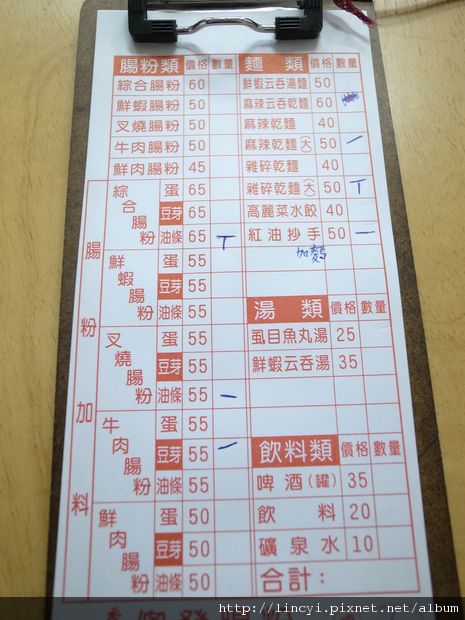 腸粉類 價格 數量
綜合腸粉 60
鮮蝦腸粉 50
叉燒腸粉 50
牛肉腸粉 50
鮮肉腸粉 45
腸粉加料
綜合腸粉
蛋 65
豆芽 65
油條 65 丅
鮮蝦腸粉
蛋 55
豆芽 55
油條 55
叉燒腸粉
蛋 55
豆芽 55
油條 55 一
牛肉腸粉
蛋 55
豆芽 55 一
油條 55
鮮肉腸粉
蛋 50
豆芽 50
油條 50
麵類 價格 數量
鮮蝦云吞湯麵 50
麻辣云吞乾麵 60
麻辣乾麵 40
麻辣乾麵(大) 50 一
雜碎乾麵 40
雜碎乾麵(大) 50 丅
高麗菜水餃 40
紅油抄手 50 一
加麵
湯類 價格 數量
虱目魚丸湯 25
鮮蝦云吞湯 35
飲料類 價格 數量
啤酒(罐) 35
飲料 20
礦泉水 10
合計:
http://lincyi.pixnet.net/album